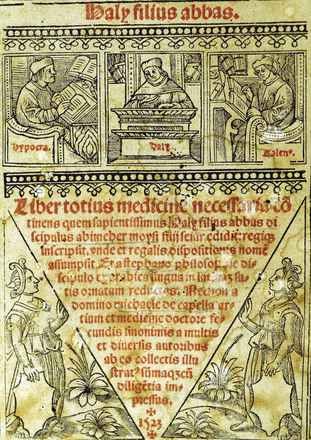 Haly filius abbas.
Hypocra.
Haly.
Galen⁹
Liber totius medicine necessaria cō
tinens quem sapientissimus Haly filius abbas di
scipulus abimeher moysi filij seiar edidit: regiq;
inscripsit. vnde et regalis dispositionis nomē
assumpsit. Et a stephano philosophie di
scipulo ex arabica lingua in latinā sa
tis ornatam reductus. Necnon a
domino michaele de capella ar
tium et medicine doctore fe
cundis sinonimis a multis
et diuersis autoribus
ab eo collectis illu
stratꝰ summaqzcū
diligētia im
pressus.
1523